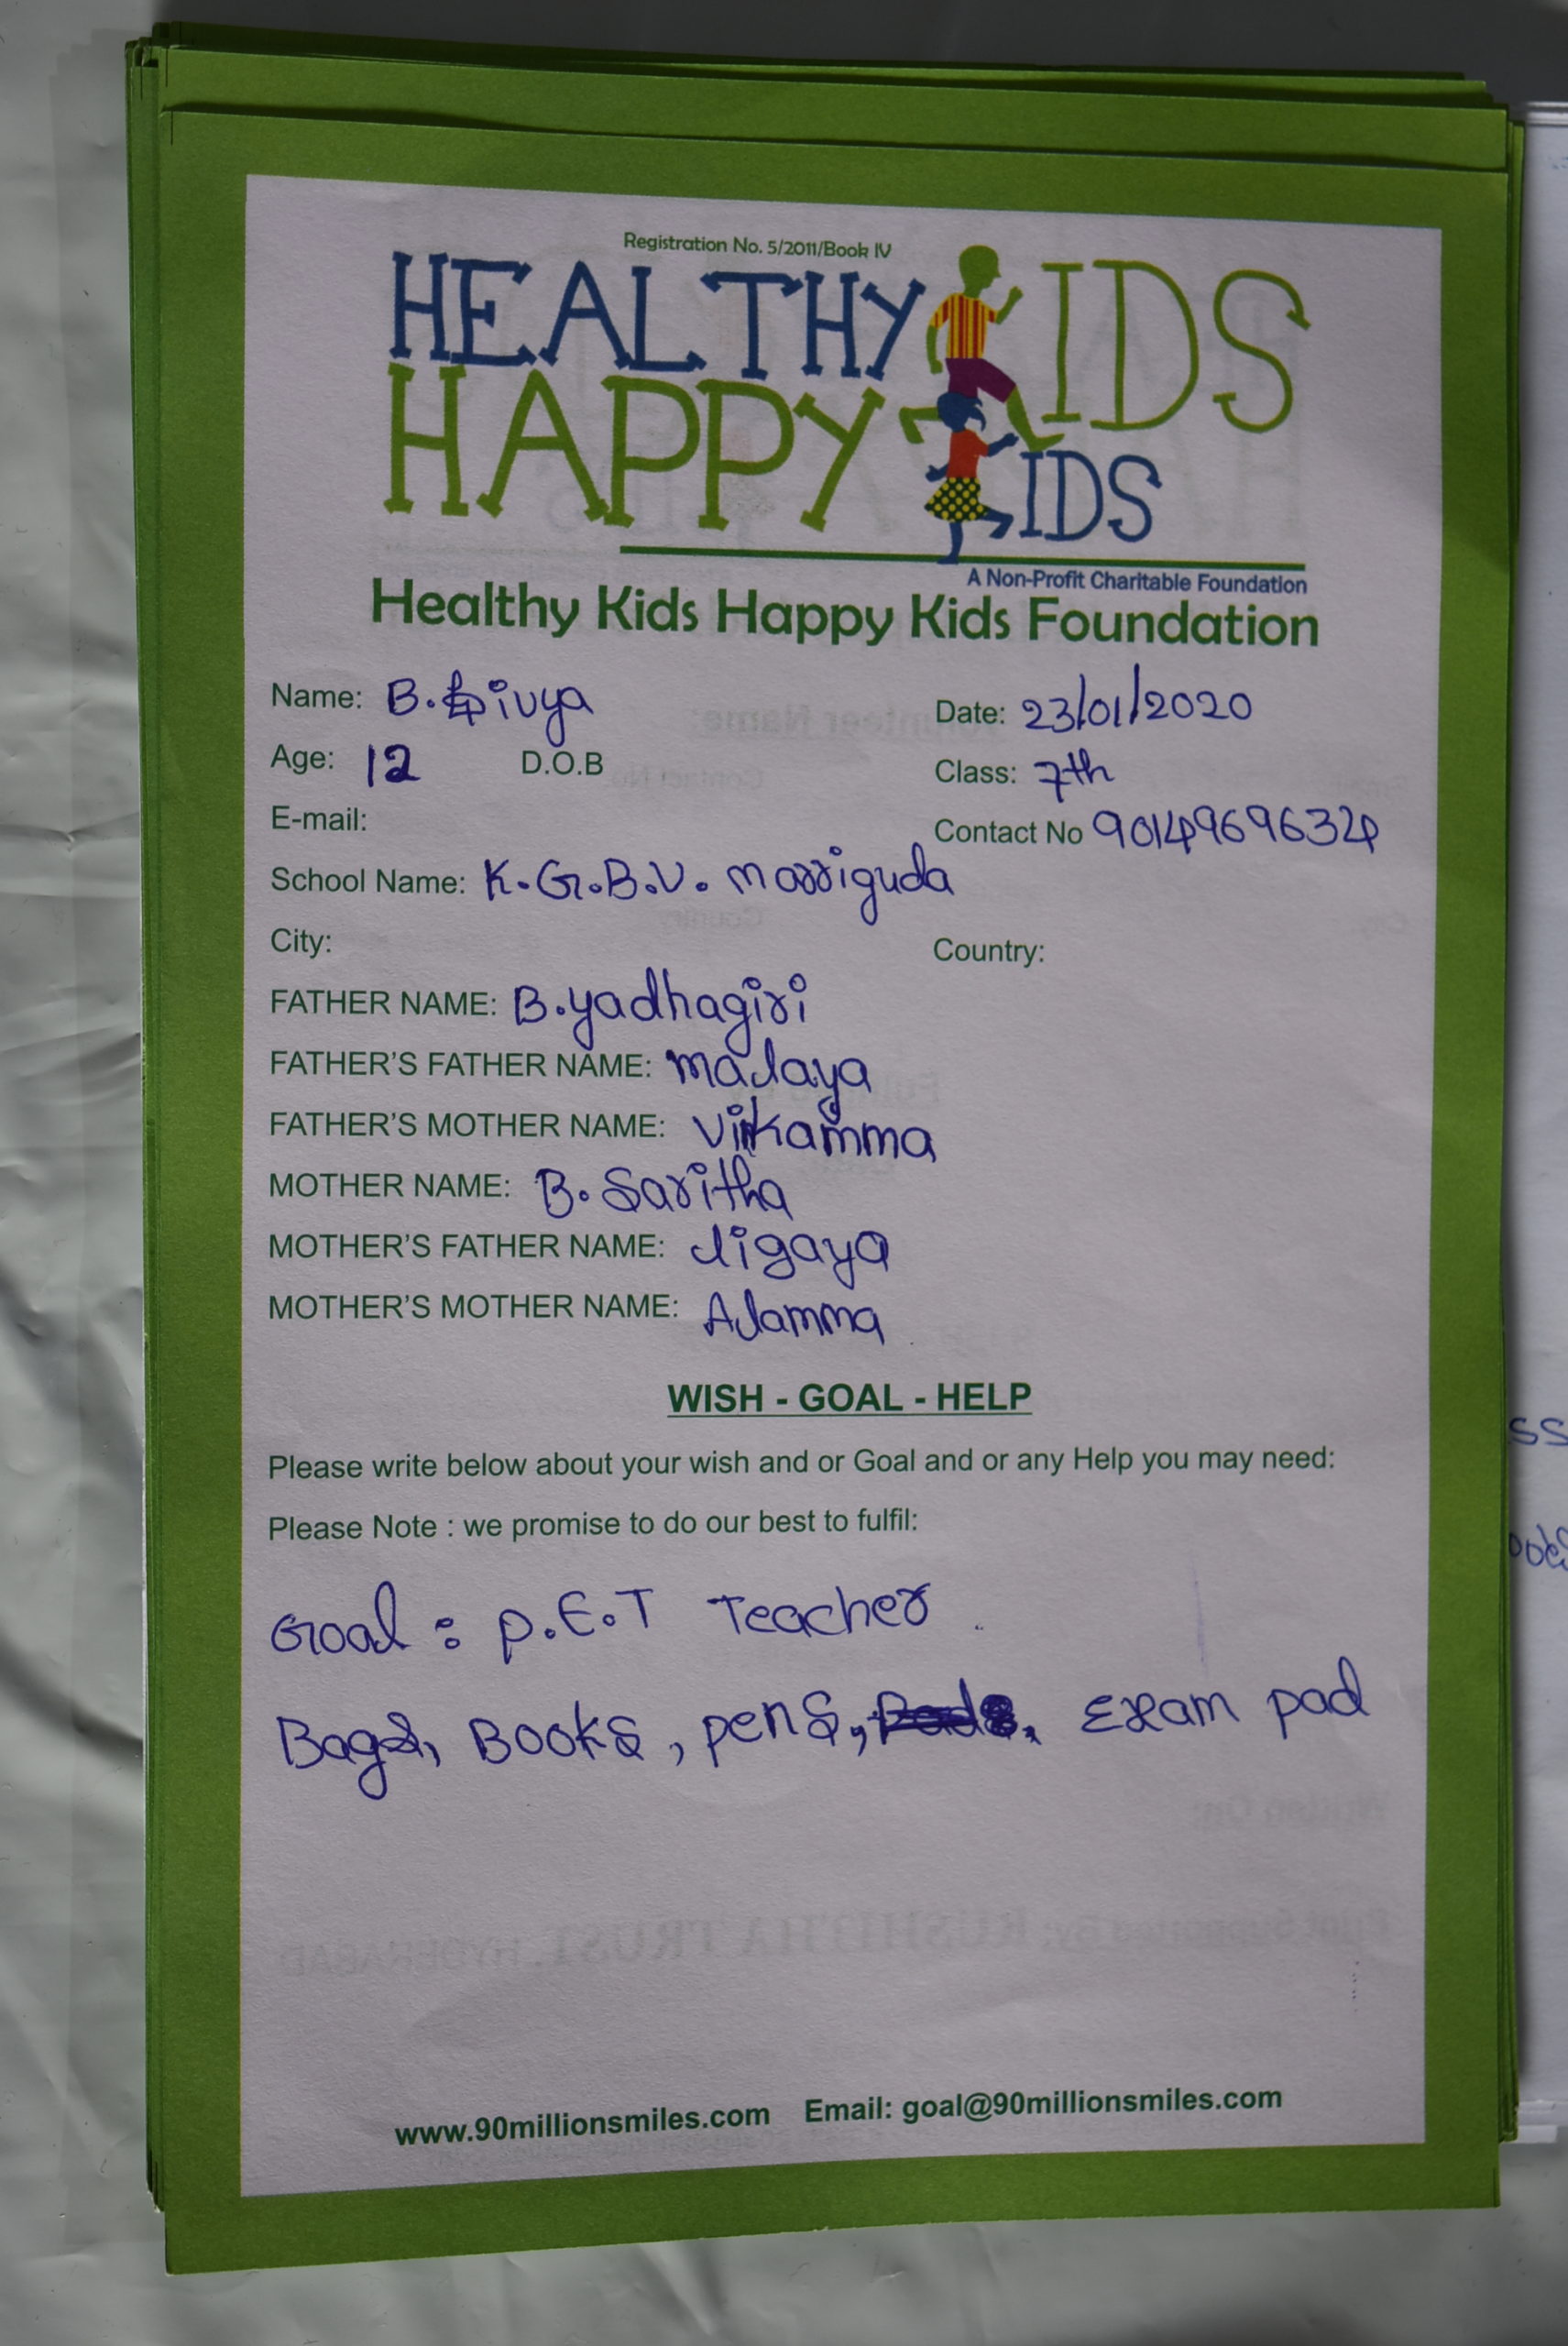 Registration No. 5/2011/Book IV
HEALTHY KIDS
HAPPY KIDS
A Non-Profit Charitable Foundation
Healthy Kids Happy Kids Foundation
Name: B. Divya Date: 23/01/2020
Age: 12 D.O.B Class: 7th
E-mail: Contact No 90149696324
School Name: K.G.B.V. marriguda
City: Country:
FATHER NAME: B.yadhagiri
FATHER'S FATHER NAME: malaya
FATHER'S MOTHER NAME: Vikamma
MOTHER NAME: B. Saritha
MOTHER'S FATHER NAME: ligaya
MOTHER'S MOTHER NAME: Alamma
WISH - GOAL - HELP
Please write below about your wish and or Goal and or any Help you may need:
Please Note : we promise to do our best to fulfil:
Goal : P.E.T Teacher
Bags, Books, pens, Exam pad
www.90millionsmiles.com Email: goal@90millionsmiles.com